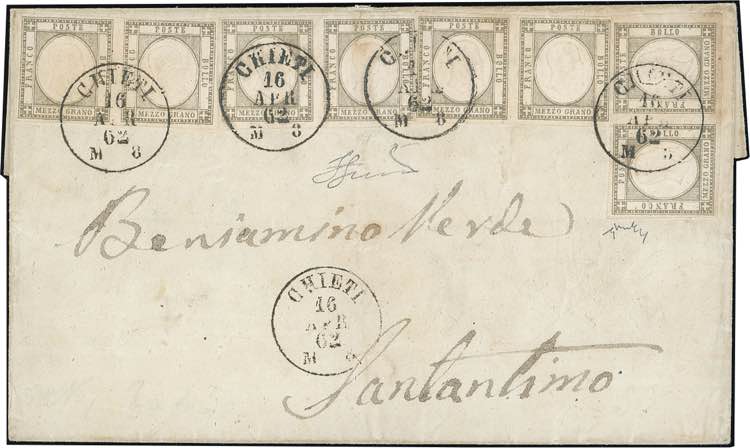 POSTE
FRANCO
BOLLO
MEZZO GRANO
POSTE
FRANCO
BOLLO
MEZZO GRANO
POSTE
FRANCO
BOLLO
MEZZO GRANO
POSTE
FRANCO
BOLLO
MEZZO GRANO
POSTE
FRANCO
BOLLO
MEZZO GRANO
POSTE
FRANCO
BOLLO
MEZZO GRANO
BOLLO
POSTE
MEZZO GRANO
FRANCO
BOLLO
POSTE
MEZZO GRANO
FRANCO
CHIETI
16
APR
62
M 8
CHIETI
16
APR
62
M 8
CHIETI
16
APR
62
M 8
CHIETI
16
APR
62
M 8
Beniamino Verde
CHIETI
16
APR
62
M 8
Santantimo